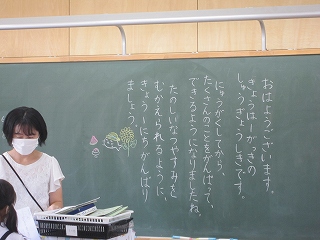 おはようございます。
きょうは一がっきの
しゅうぎょうしきです。
にゅうがくしてから、
たくさんのことをがんばって、
できるようになりましたね。
たのしいなつやすみを
むかえられるように、
きょう一にちがんばり
ましょう。